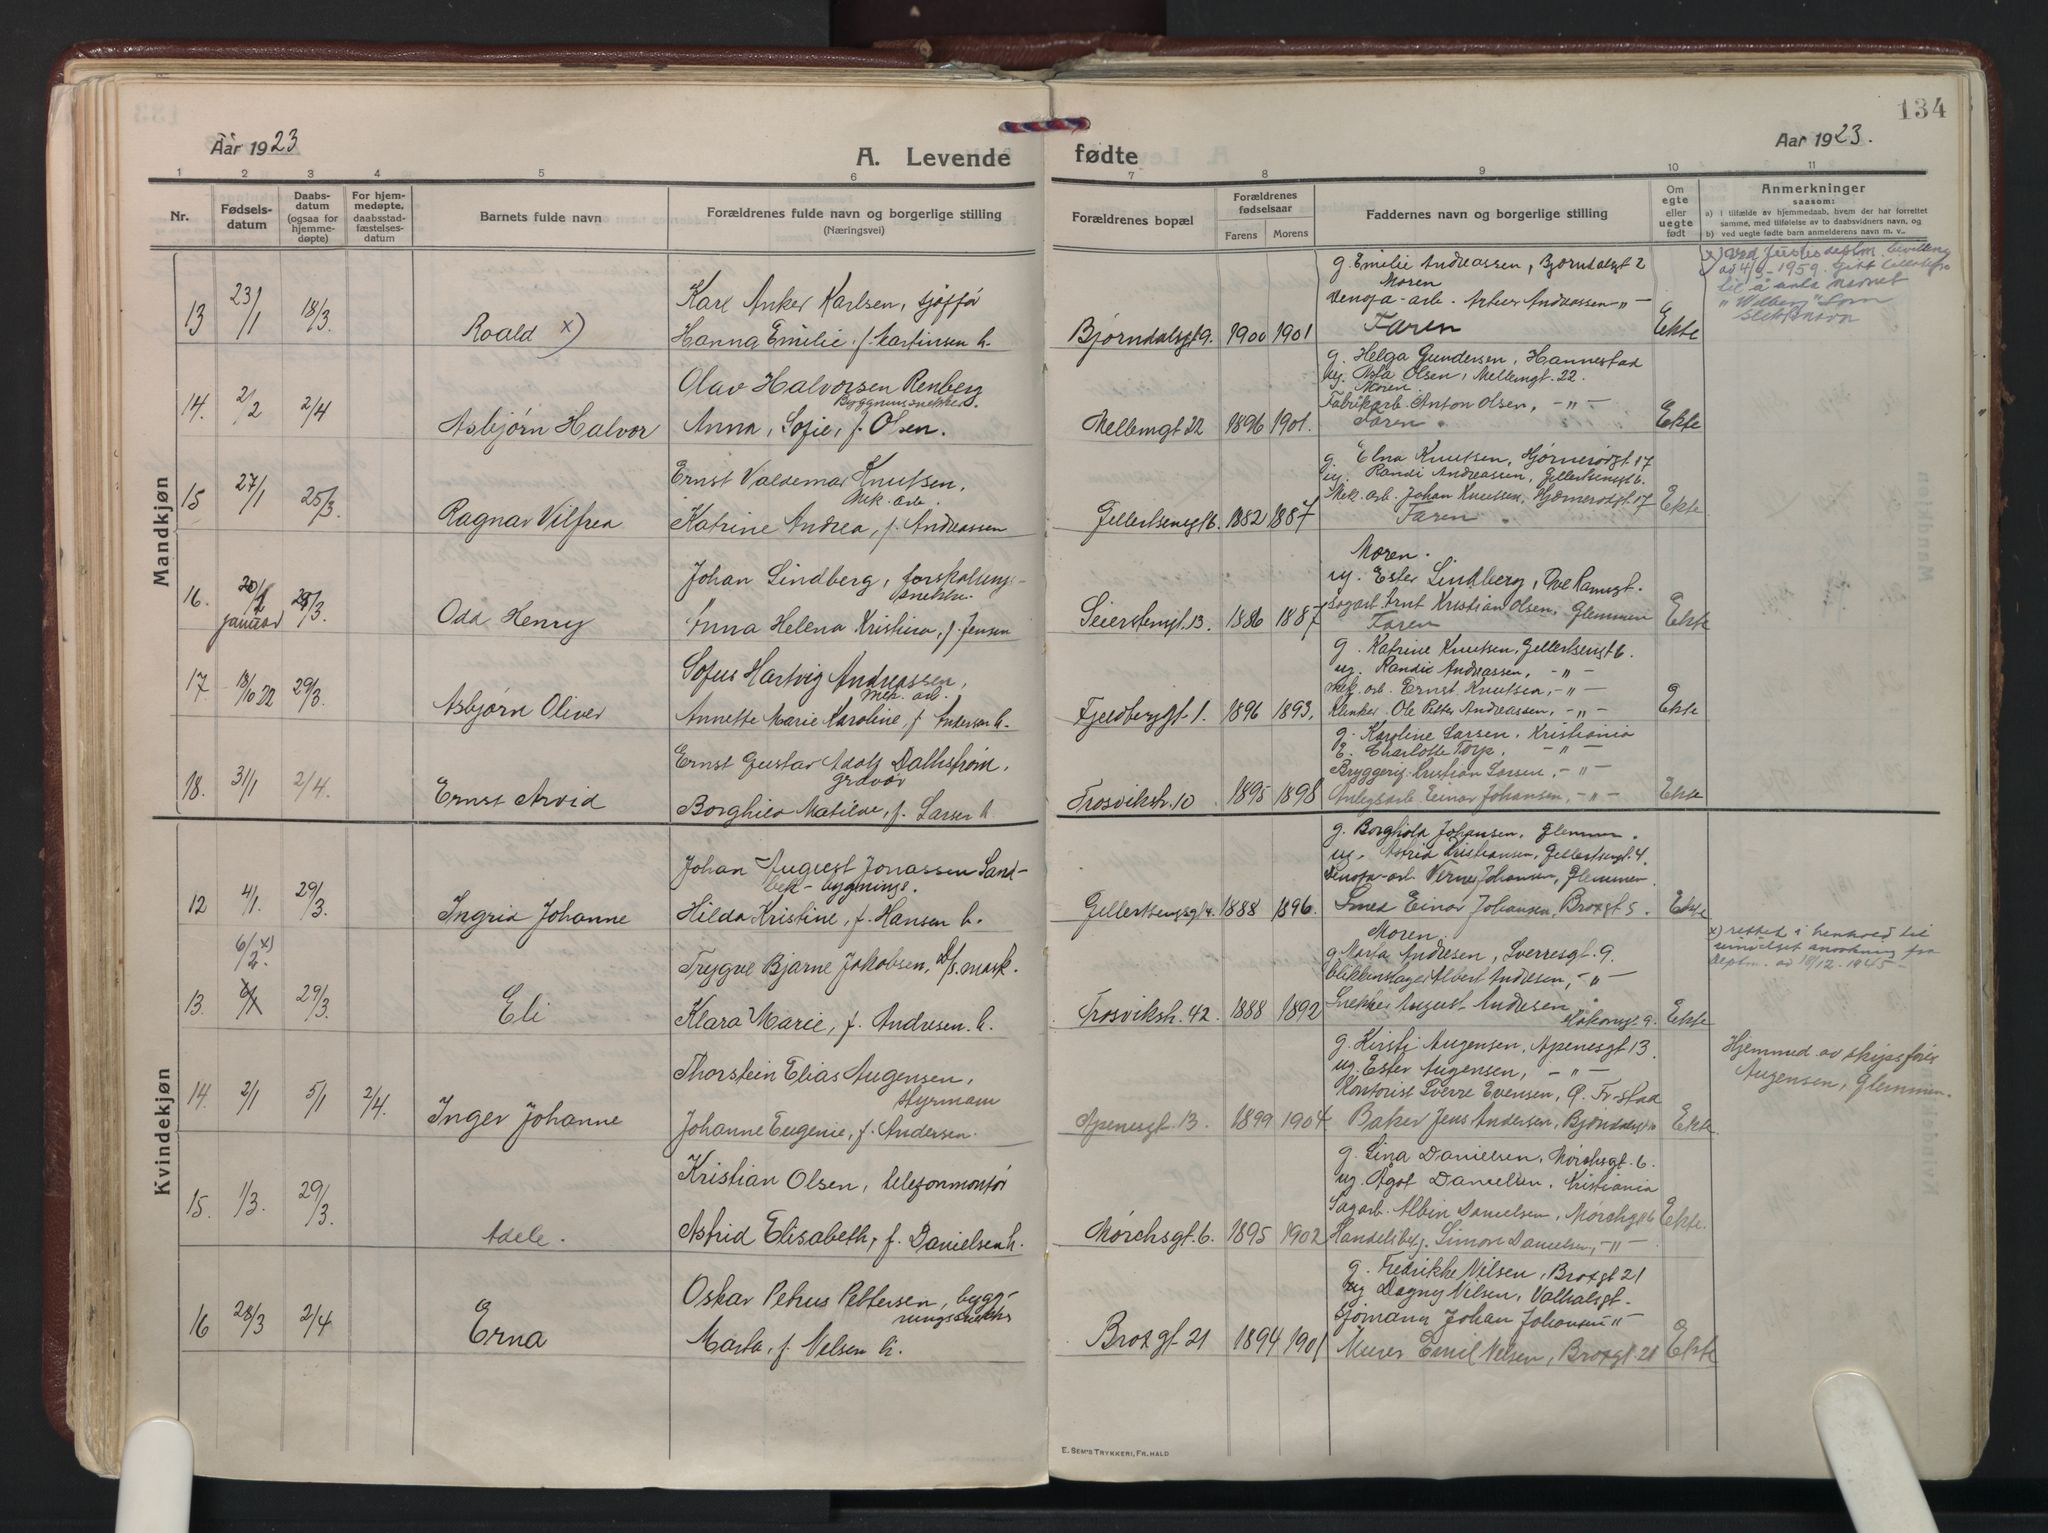 Aar 1923
A. Levende fødte
Aar 1923.
134
1 2 3 4 5 6 7 8 9 10 11
Nr.
Fødsels-
datum
Daabs-
datum
(ogsaa for
hjemme-
døpte)
For hjem-
medøpte,
daabsstad-
fæstelses-
datum
Barnets fulde navn
Forældrenes fulde navn og borgerlige stilling
(Næringsvei)
Forældrenes bopæl
Forældrenes
fødselsaar
Farens Morens
Faddernes navn og borgerlige stilling
Om
egte
eller
uegte
født
Anmerkninger
saasom:
a) i tilfælde av hjemmedaab, hvem der har forrettet
samme, med tilføielse av to daabsvidners navn, og
b) ved uegte fødte barn anmelderens navn m. v.
Mandkjøn
13 23/1 18/3 Roald x)
Karl Anker Karlsen, sjåffør
Hanna Emilie, f. Martinsen h.
Bjørndalsgt 9. 1900 1901
g. Emilie Andreassen, Bjørndalsgt 2
Moren
Denofa-arb. Andreassen -"-
Faren
Ekte
x) Ved Justisdeptm. bevilling
av 4/3-1959. gitt
til å anta navnet
"Wilberg" som
slektsnavn
14. 2/2 2/4 Asbjørn Halvor
Olav Halvorsen Renberg
Bygningssnekker.
Anna, Sofie, f. Olsen.
Mellemgt 22 1896 1901.
g. Helga Gundersen, Hannestad
ug. Asta Olsen, Mellemgt. 22.
Moren.
Fabrikarb. Anton Olsen, -"-
Faren.
Ekte
15 27/1 25/3. Ragnar Vilfred
Ernst Valdemar Knutsen,
Mek. arb.
Katrine Andrea, f. Andreassen
Gellertsensgt 6. 1882 1887
g. Elna Knutsen, Hjørnerødgt 17
ug. Randi Andreassen, Gellertsensgt 6.
Mek. arb. Johan Knutsen, Hjørnerødgt. 17
Faren.
Ekte
16. januar 25/3. Odd Henry
Johan Lindberg, forskalings-
snekker
Anna Helena Kristina, f. Jensen
Seierstengt. 13. 1886 1887
Moren.
ug. Ester Lindberg, Ove Ramsgt.
Kristian Olsen, Glemmen
Faren
Ekte
17. 18/10 22 29/3. Asbjørn Oliver
Sofus Hartvig Andreassen,
Mek. arb.
Annette Marie Karoline, f. Andersen h.
Fjeldberggt. 1. 1896 1893.
g. Katrine Knutsen, Gellertsensgt 6.
ug. Randi Andreassen, -"-
Mek. arb. Ernst Knutsen, -"-
Klinker. Ole Petter Andreassen, -"-
Ekte
18. 31/1 2/4. Ernst Arvid
Ernst Gustav Adolf Dalhstrøm,
gravør
Borghild Matilde, f. Larsen h.
Trosvikstr. 10 1895 1898
g. Karoline Larsen, Kristiania
g. Charlotte Torp, -"-
Bryggeriarb. Kristian Larsen, -"-
Einar Johansen, -"-
Ekte
Kvindekjøn
12 4/1. 29/3. Ingrid Johanne
Johan August Jonassen Sand-
bek - bygnings.
Hilda Kristine, f. Hansen h.
Gellertsensgt 4. 1888 1896.
g. Borghild Johansen, Glemmen.
ug. Astrid Kristiansen, Gellertsensgt. 4.
Denofa-arb Verner Johansen, Glemmen.
Smed Einar Johansen, Broxgt 5.
Ekte
13. 6/2 x) 6/1 29/3. Eli
Trygve Bjarne Jakobsen, D/s. mask.
Klara Marie, f. Andresen. h.
Trosvikstr. 42. 1888 1892
Moren.
g. Marta Andresen, Sverresgt. 9.
blikkenslager Albert Andresen, -"-
Snekker August Andresen
Håkonsgt. 9.
Ekte
x) rettet i henhold til
anordning fra
Deptm. av 10/12. 1945-
14. 2/1 5/1 2/4. Inger Johanne
Thorstein Elias Augensen,
styrmann
Johanne Eugenie, f. Andersen.
Apenesgt. 13. 1899 1904
g. Kirsti Augensen, Apenesgt 13.
ug. Ester Augensen, -"-
Kontorist Sverre Evensen, Fr. stad
Baker Jens Andersen, Bjørndalsgt
Ekte.
Hjemmed. av skipsfører
Augensen, Glemmen.
15. 1/3. 29/3. Adele.
Kristian Olsen, telefonmontør
Astrid Elisabeth, f. Danielsen h.
Mørchsgt. 6. 1895 1902
g. Lina Danielsen, Mørchsgt. 6.
ug. Ågot Danielsen, Kristiania
Sagarb. Albin Danielsen, Mørchsgt 6
Handelsbetj. Simon Danielsen, -"-
Ekte.
16 28/3 2/4 Erna
Oskar Petrus Pettersen, bygg-
ningssnekker
Marta, f. Nilsen h.
Broxgt. 21 1894 1901
g. Fredrikke Nilsen, Broxgt 21
ug Dagny Nilsen, Valhalsgt.
Sjømann Johan Johansen -"-
Murer Emil Nilsen, Broxgt. 21
Ekte
E. SEM'S TRYKKERI, FR.HALD